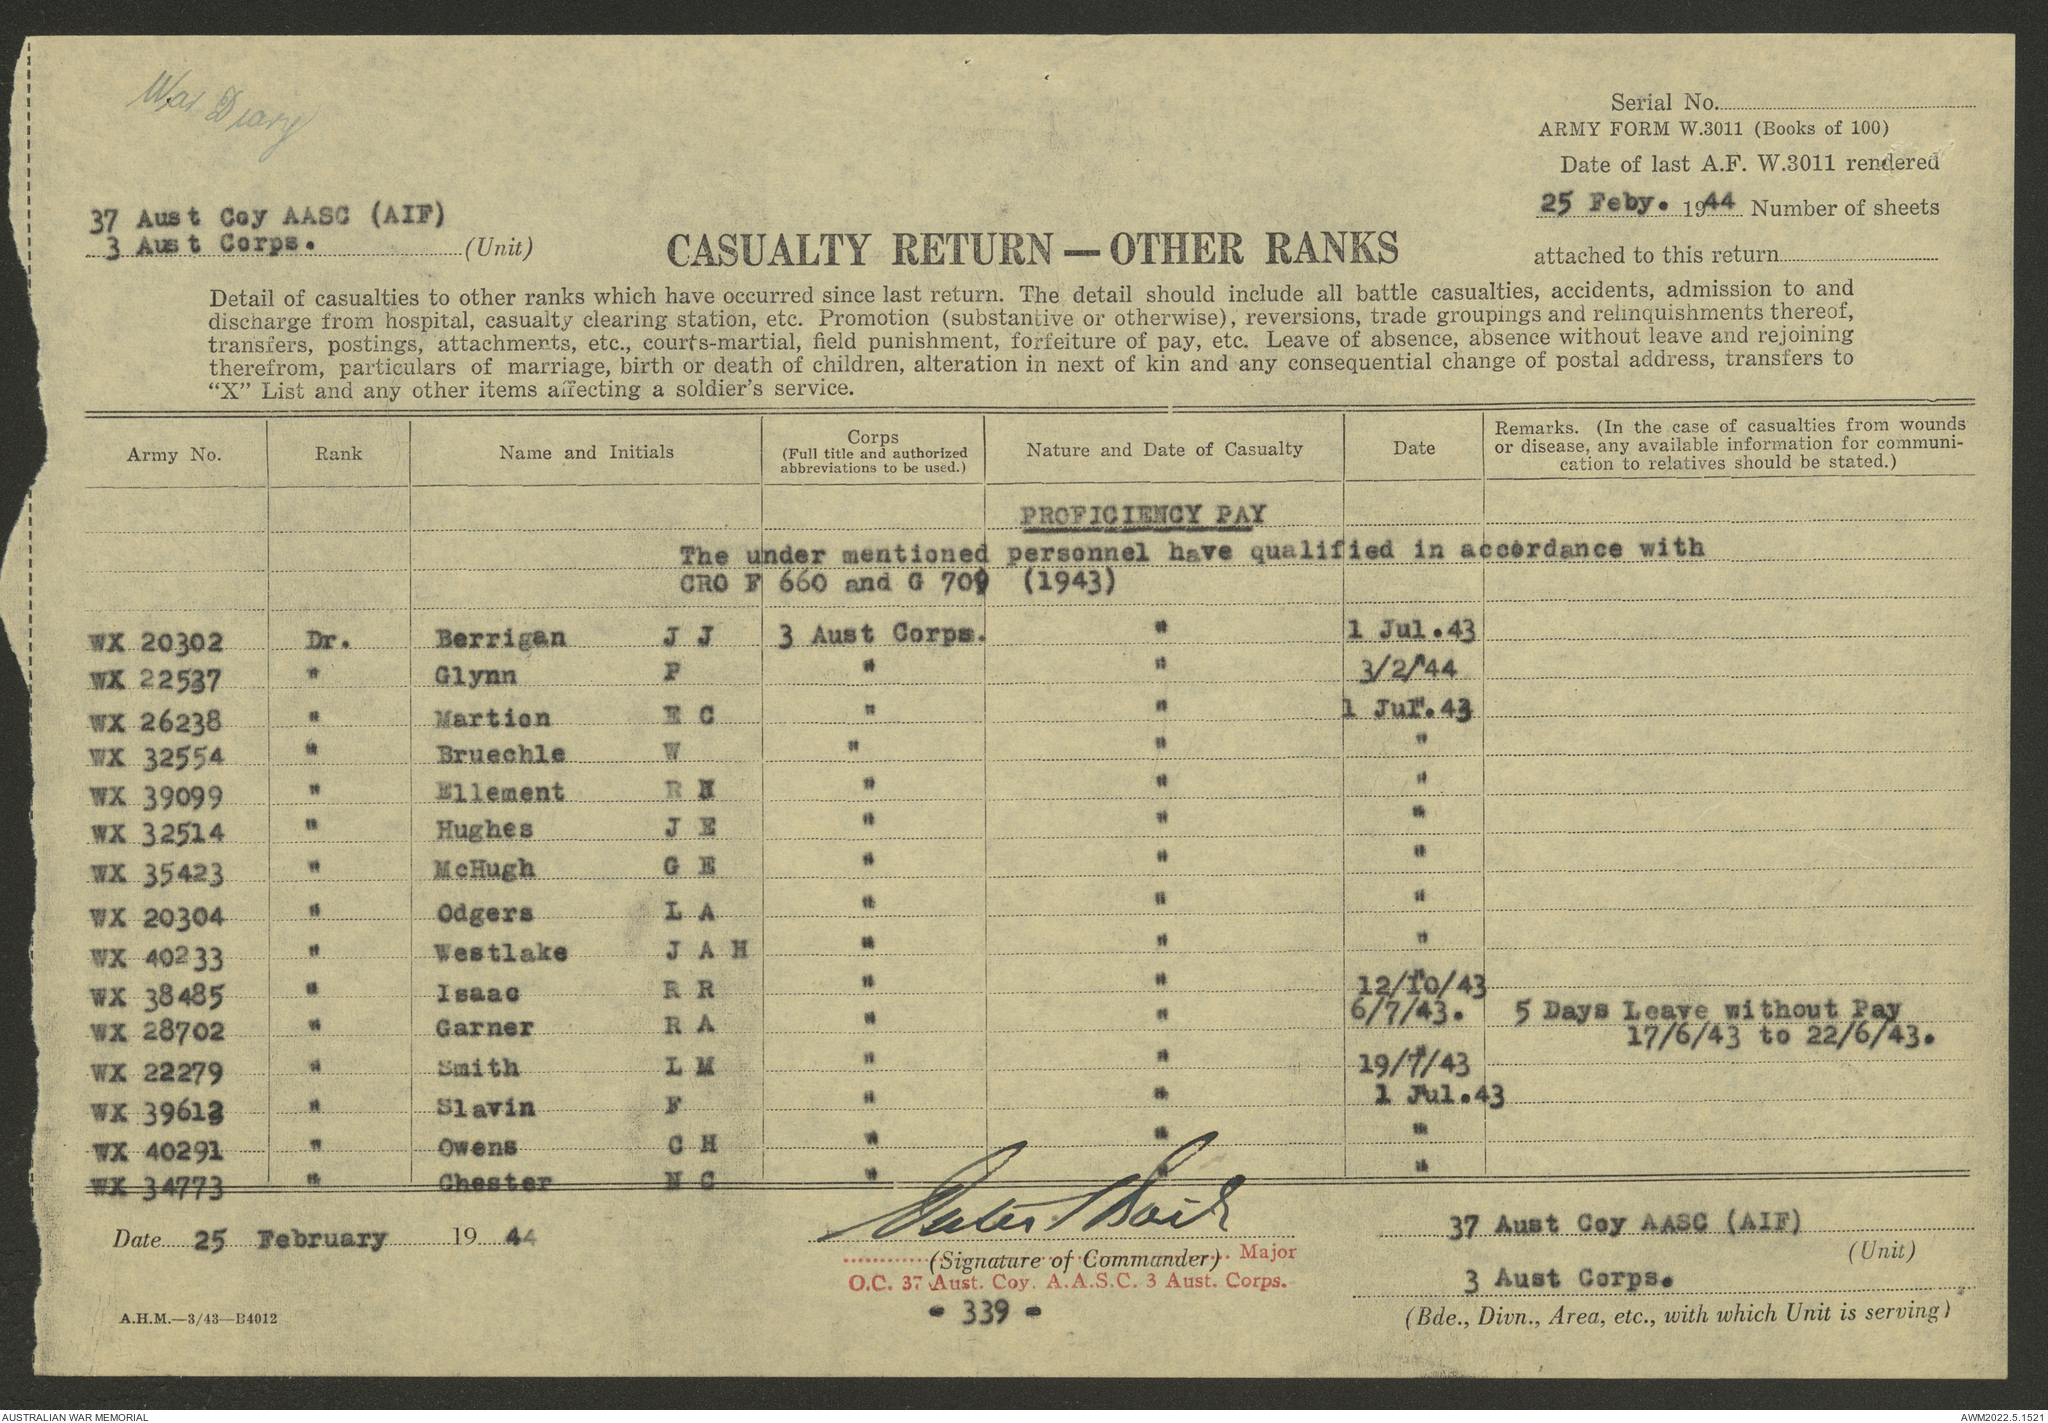 War Diary
Serial No.
ARMY FORM W.3011 (Books of 100)
Date of last A.F. W.3011 rendered
25 Feby. 1944 Number of sheets
attached to this return
37 Aust Coy AASC (AIF)
3 Aust Corps. (Unit)
CASUALTY RETURN — OTHER RANKS
Detail of casualties to other ranks which have occurred since last return. The detail should include all battle casualties, accidents, admission to and
discharge from hospital, casualty clearing station, etc. Promotion (substantive or otherwise), reversions, trade groupings and relinquishments thereof,
transfers, postings, attachments, etc., courts-martial, field punishment, forfeiture of pay, etc. Leave of absence, absence without leave and rejoining
therefrom, particulars of marriage, birth or death of children, alteration in next of kin and any consequential change of postal address, transfers to
"X" List and any other items affecting a soldier's service.
Army No. Rank Name and Initials Corps (Full title and authorized abbreviations to be used.) Nature and Date of Casualty Date Remarks. (In the case of casualties from wounds or disease, any available information for communication to relatives should be stated.)
PROFICIENCY PAY
The under mentioned personnel have qualified in accordance with
CRO F 660 and G 709 (1943)
WX 20302 Dr. Berrigan J J 3 Aust Corps. " 1 Jul.43
WX 22537 " Glynn P " " 3/2/44
WX 26238 " Martion E C " " 1 Jul.43
WX 32554 " Bruechle W " " "
WX 39099 " Ellement R N " " "
WX 32514 " Hughes J E " " "
WX 35423 " McHugh G E " " "
WX 20304 " Odgers L A " " "
WX 40233 " Westlake J A H " " "
WX 38485 " Isaac R R " " 12/10/43
WX 28702 " Garner R A " " 6/7/43. 5 Days Leave without Pay
17/6/43 to 22/6/43.
WX 22279 " Smith L M " " 19/7/43
WX 39612 " Slavin F " " 1 Jul.43
WX 40291 " Owens C H " " "
WX 34773 " Chester N C " " "
Date 25 February 1944
(Signature of Commander) Major
O.C. 37 Aust. Coy. A.A.S.C. 3 Aust. Corps.
37 Aust Coy AASC (AIF)
(Unit)
3 Aust Corps.
(Bde., Divn., Area, etc., with which Unit is serving)
- 339 -
A.H.M.—3/43—B4012
AUSTRALIAN WAR MEMORIAL
AWM2022.5.1521